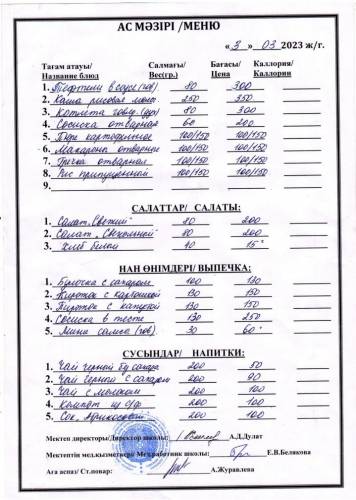 АС МӘЗІРІ /МЕНЮ
«3» 03 2023 ж/г.
Тағам атауы/ Салмағы/ Бағасы/ Каллория/
Название блюд Вес(гр.) Цена Каллории
1. Тефтели в соусе (гов) 80 300
2. Каша рисовая молоч 250 350
3. Котлета говяд. 80 300
4. Сосиска отварная 60 200
5. Пюре картофельное 100/150 100/150
6. Макароны отварные 100/150 100/150
7. Гречка отварная 100/150 100/150
8. Рис припущенный 100/150 100/150
9.
САЛАТТАР/ САЛАТЫ:
1. Салат „Свежий" 80 200
2. Салат „Свекольный" 80 200
3. Хлеб белый 40 15
НАН ӨНІМДЕРІ/ ВЫПЕЧКА:
1. Булочка с сахаром 100 130
2. Пирожок с картошкой 130 150
3. Пирожок с капустой 130 150
4. Сосиска в тесте 130 250
5. Мини самса (гов). 30 60
СУСЫНДАР/ НАПИТКИ:
1. Чай черный б/ сахара 200 50
2. Чай черный с сахаром 200 90
3. Чай с молоком 200 100
4. Компот из с/ф 200 100
5. Сок „Абрикосовый" 200 100
Мектеп директоры/Директор школы: А.Д.Дулат
Мектептің медқызметкері/ Медработник школы: Е.В.Белякова
Аға аспаз/ Ст.повар: А.Журавлева